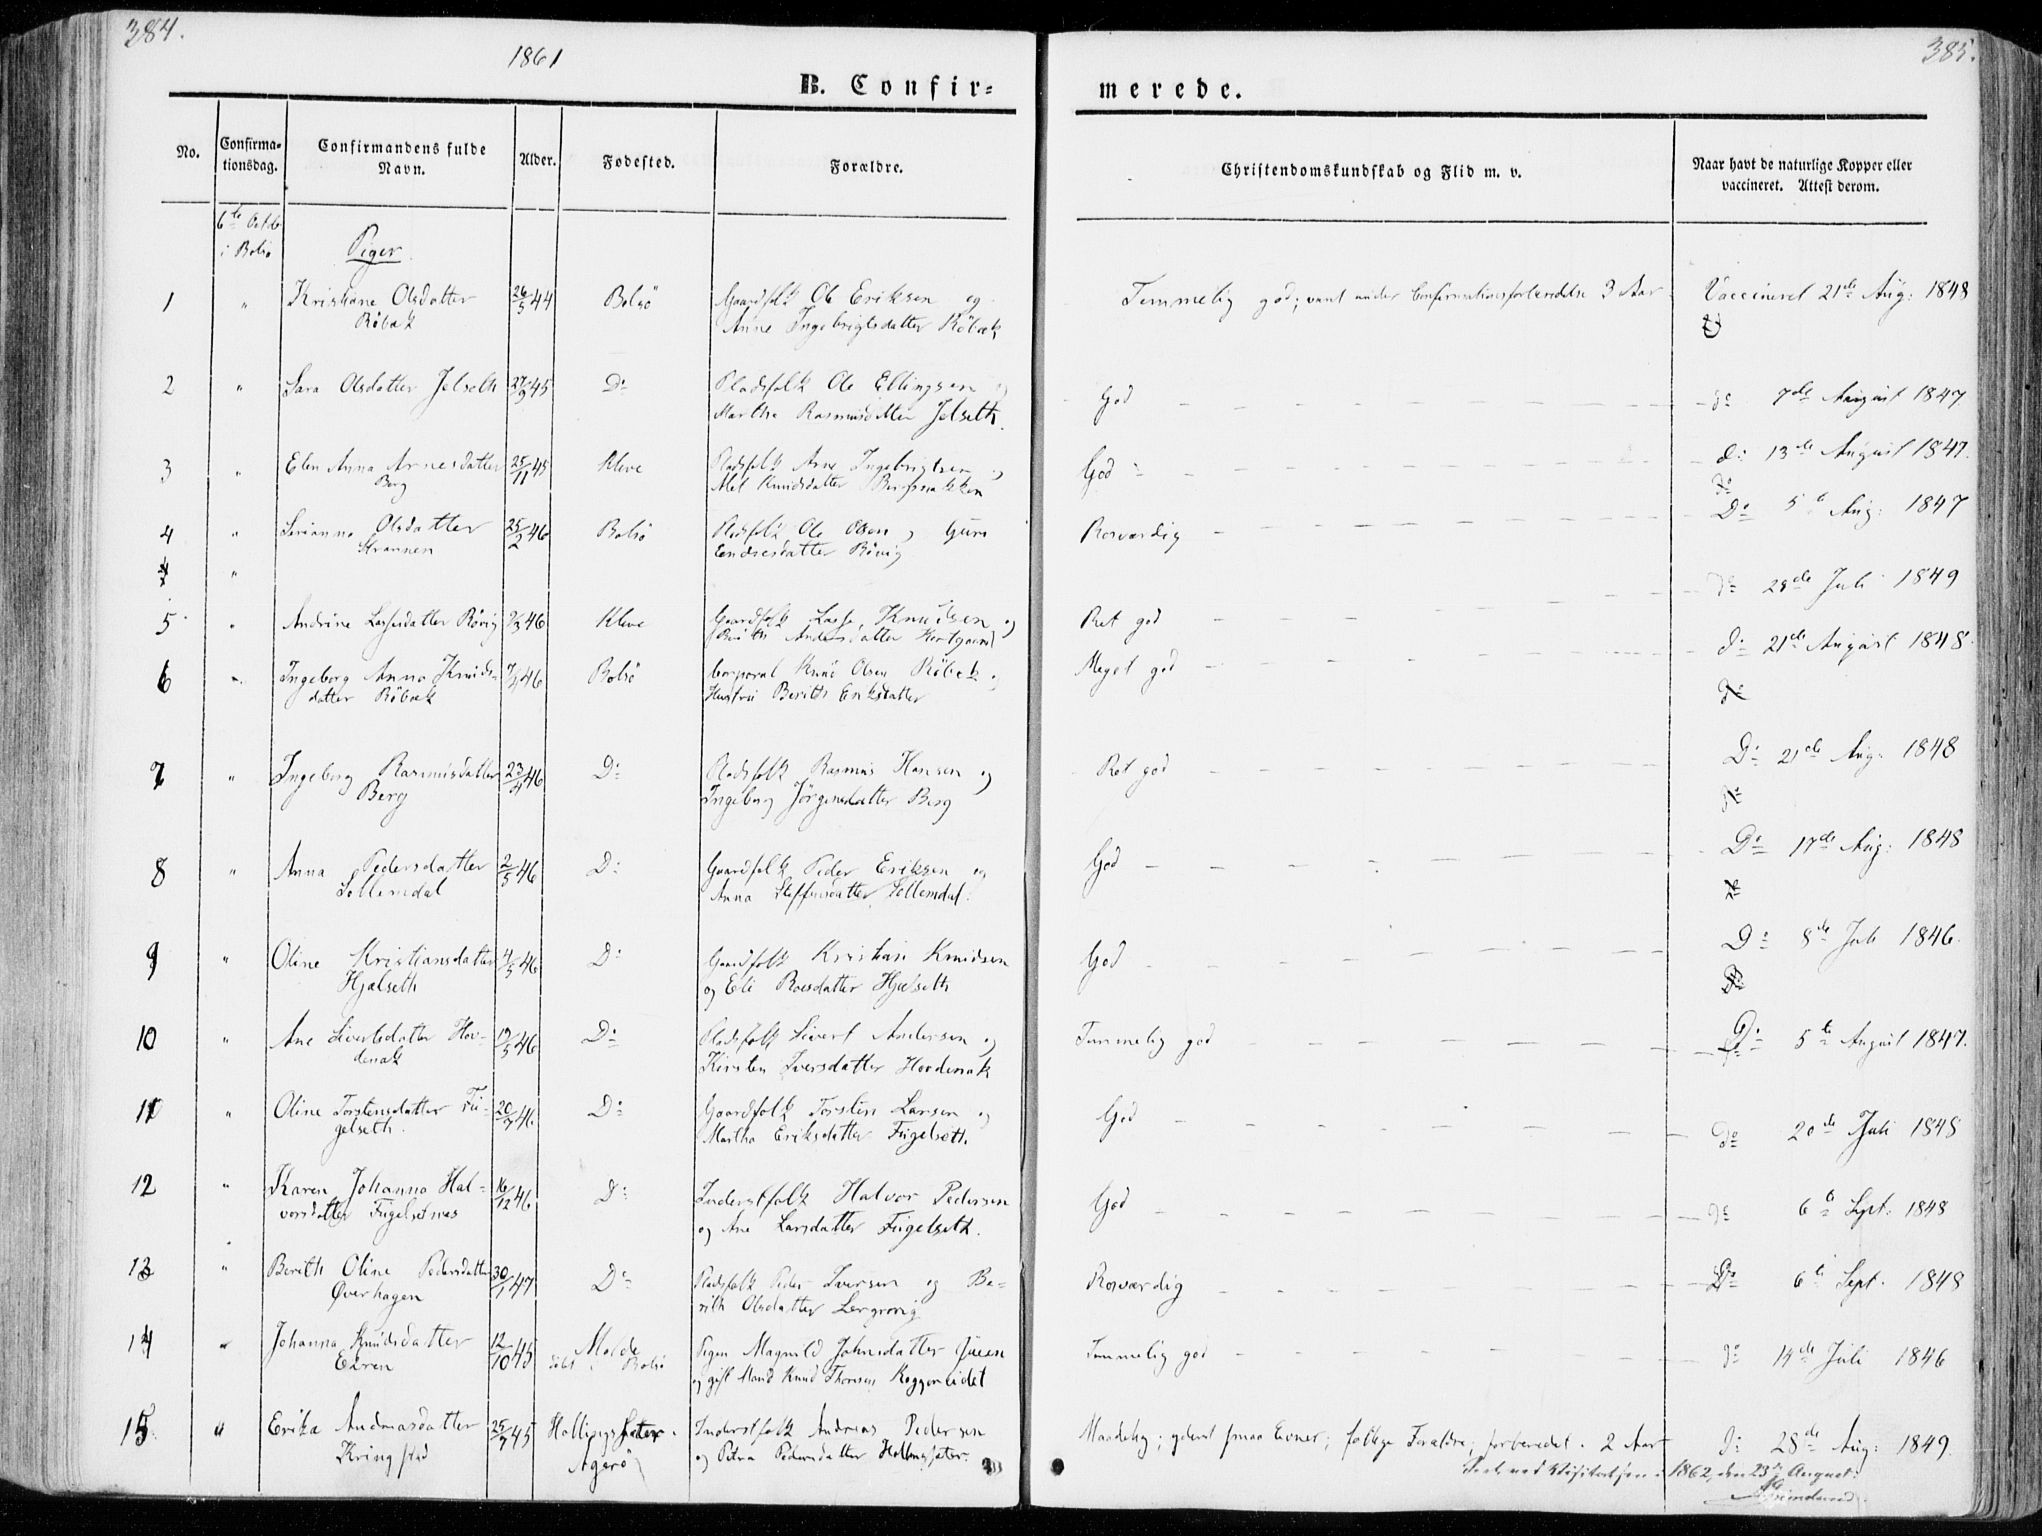 384.
1861
385.
B. Confir-
merede.
No.
Confirma-
tionsdag.
Confirmandens fulde
Navn.
Alder.
Fødested.
Forældre.
Christendomskundskab og Flid m. v.
Naar havt de naturlige Kopper eller
vaccineret. Attest derom.
6te Octob
i Bolsø
Piger
1 " Kristiane Olsdatter 26/5 44 Bolsö Gaardfolk Ole Eriksen og Temmelig god; vant under Confirmationsforberedelse 3 Aar Vaccineret 21de Aug: 1848
Röbæk Anne Ingebrigtsdatter Röbæk
2 " Sara Olsdatter Jelseth 27/9 45 Do Pladsfolk Ole Ellingsen og God do 7de August 1847
Marthe Rasmusdatter Jelseth.
3 " Elen Anna Arnesdatter 25/11 45 Kleve Pladsfolk Arne Ingebrigtsen og God do 13de August 1847.
Berg Mel Knudsdatter
4 " Olsdatter 25/2 46 Bolsö Pladsfolk Ole Olsen og Guro Rosværdig Do 5te Aug: 1847
Strannen Endresdatter Rövig
"
5 " Andrine Lassesdatter Rövig 46 Kleve Gaardfolk Lasse Knudsen og Ret god do 28de Juli 1849
Andersdatter
6 " Ingeborg Anna Knuds- 46 Bolsö Corporal Knud Olsen Röbæk og Meget god do 21de August 1848
datter Röbæk Hustru Berith Eriksdatter
7 " Ingeborg Rasmusdatter 23/4 46 Do Pladsfolk Rasmus Hansen og Ret god Do 21de Aug: 1848
Berg Ingeborg Jörgensdatter Berg
8 " Anna Pedersdatter 2/5 46 Do Gaardfolk Peder Eriksen og God Do 17de Aug: 1848
Sollemdal Anna Steffensdatter Sollemdal.
9 " Oline Kristiansdatter 4/5 46 Do Gaardfolk Kristian Knudsen God Do 8de Juli 1846.
Hjelseth og Eli Roesdatter Hjelseth
10 " Ane Sivertsdatter Hov- 17/5 46 Do Pladsfolk Sivert Andersen og Temmelig god Do 5te August 1847.
denak Kirsten Iversdatter Hovdenak
11 " Oline Torstensdatter Fü- 20/7 46 Do Gaardfolk Torsten Larsen og God do 20de Juli 1848
gelseth. Martha Eriksdatter Fügelseth.
12 " Karen Johanna Hal- 16/12 46 Do Inderstfolk Halvor Pedersen God do 6te Sept: 1848
vorsdatter Fügelsetnes og Ane Larsdatter Fügelseth.
13 " Berith Oline Pedersdatter 30/1 47 Do Pladsfolk Peder Iversen og Be- Rosværdig Do 6te Sept. 1848
Øverhagen rith Olsdatter Lergrovig
14 " Johanna Knudsdatter 12/10 45 Molde Pigen Magnild Johnsdatter Temmelig god do 14de Juli 1846
Exren Bolsö og gift Mand Knud Thoresen
15 " Erika Andreasdatter 25/7 45 Hollingsæter Inderstfolk Andreas Pedersen Maadelig; yderst smaa Evner; fattige Forældre; forberedet 2 Aar do 28de Aug: 1849.
Kringstad Agerö og Petra Pedersdatter Hollingsæter.
Seet ved Visitatsen i 1862, den 23de August: